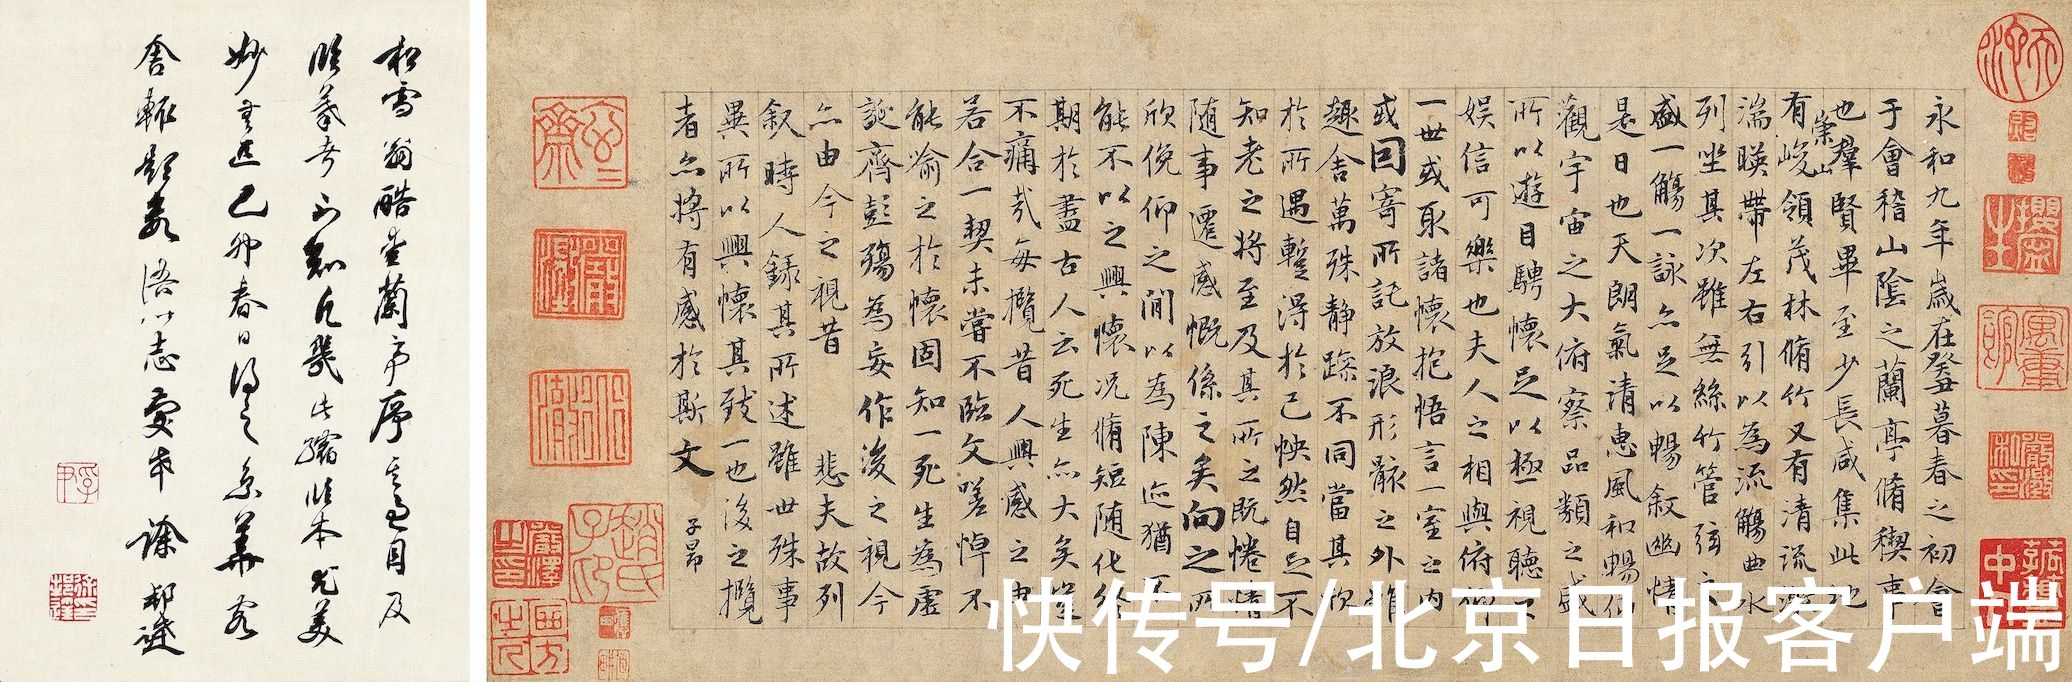 永和九年歲在癸丑暮春之初會
于會稽山陰之蘭亭脩稧事
也羣賢畢至少長咸集此地
有崇山峻領茂林脩竹又有清流激
湍暎帶左右引以為流觴曲水
列坐其次雖無絲竹管弦之
盛一觴一詠亦足以暢叙幽情
是日也天朗氣清惠風和暢仰
觀宇宙之大俯察品類之盛
所以遊目騁懷足以極視聽之
娱信可樂也夫人之相與俯仰
一世或取諸懷抱悟言一室之内
或因寄所託放浪形骸之外雖
趣舍萬殊静躁不同當其欣
於所遇蹔得於己怏然自足不
知老之將至及其所之既惓情
随事遷感慨係之矣向之所
欣俛仰之閒以為陳迹猶不
能不以之興懷况脩短随化終
期於盡古人云死生亦大矣豈
不痛哉每攬昔人興感之由
若合一契未嘗不臨文嗟悼不
能喻之於懷固知一死生為虚
誕齊彭殤為妄作後之視今
亦由今之視昔 悲夫故列
叙時人録其所述雖世殊事
異所以興懷其致一也後之攬
者亦將有感於斯文 子昂
趙氏子昂
松雪翁酷愛蘭亭序過目及
臨摹者不知凡幾此縮臨本尤美
妙無匹己卯春日得之
舍輒題數語以志愛幸 徐邦達
快传号/北京日报客户端